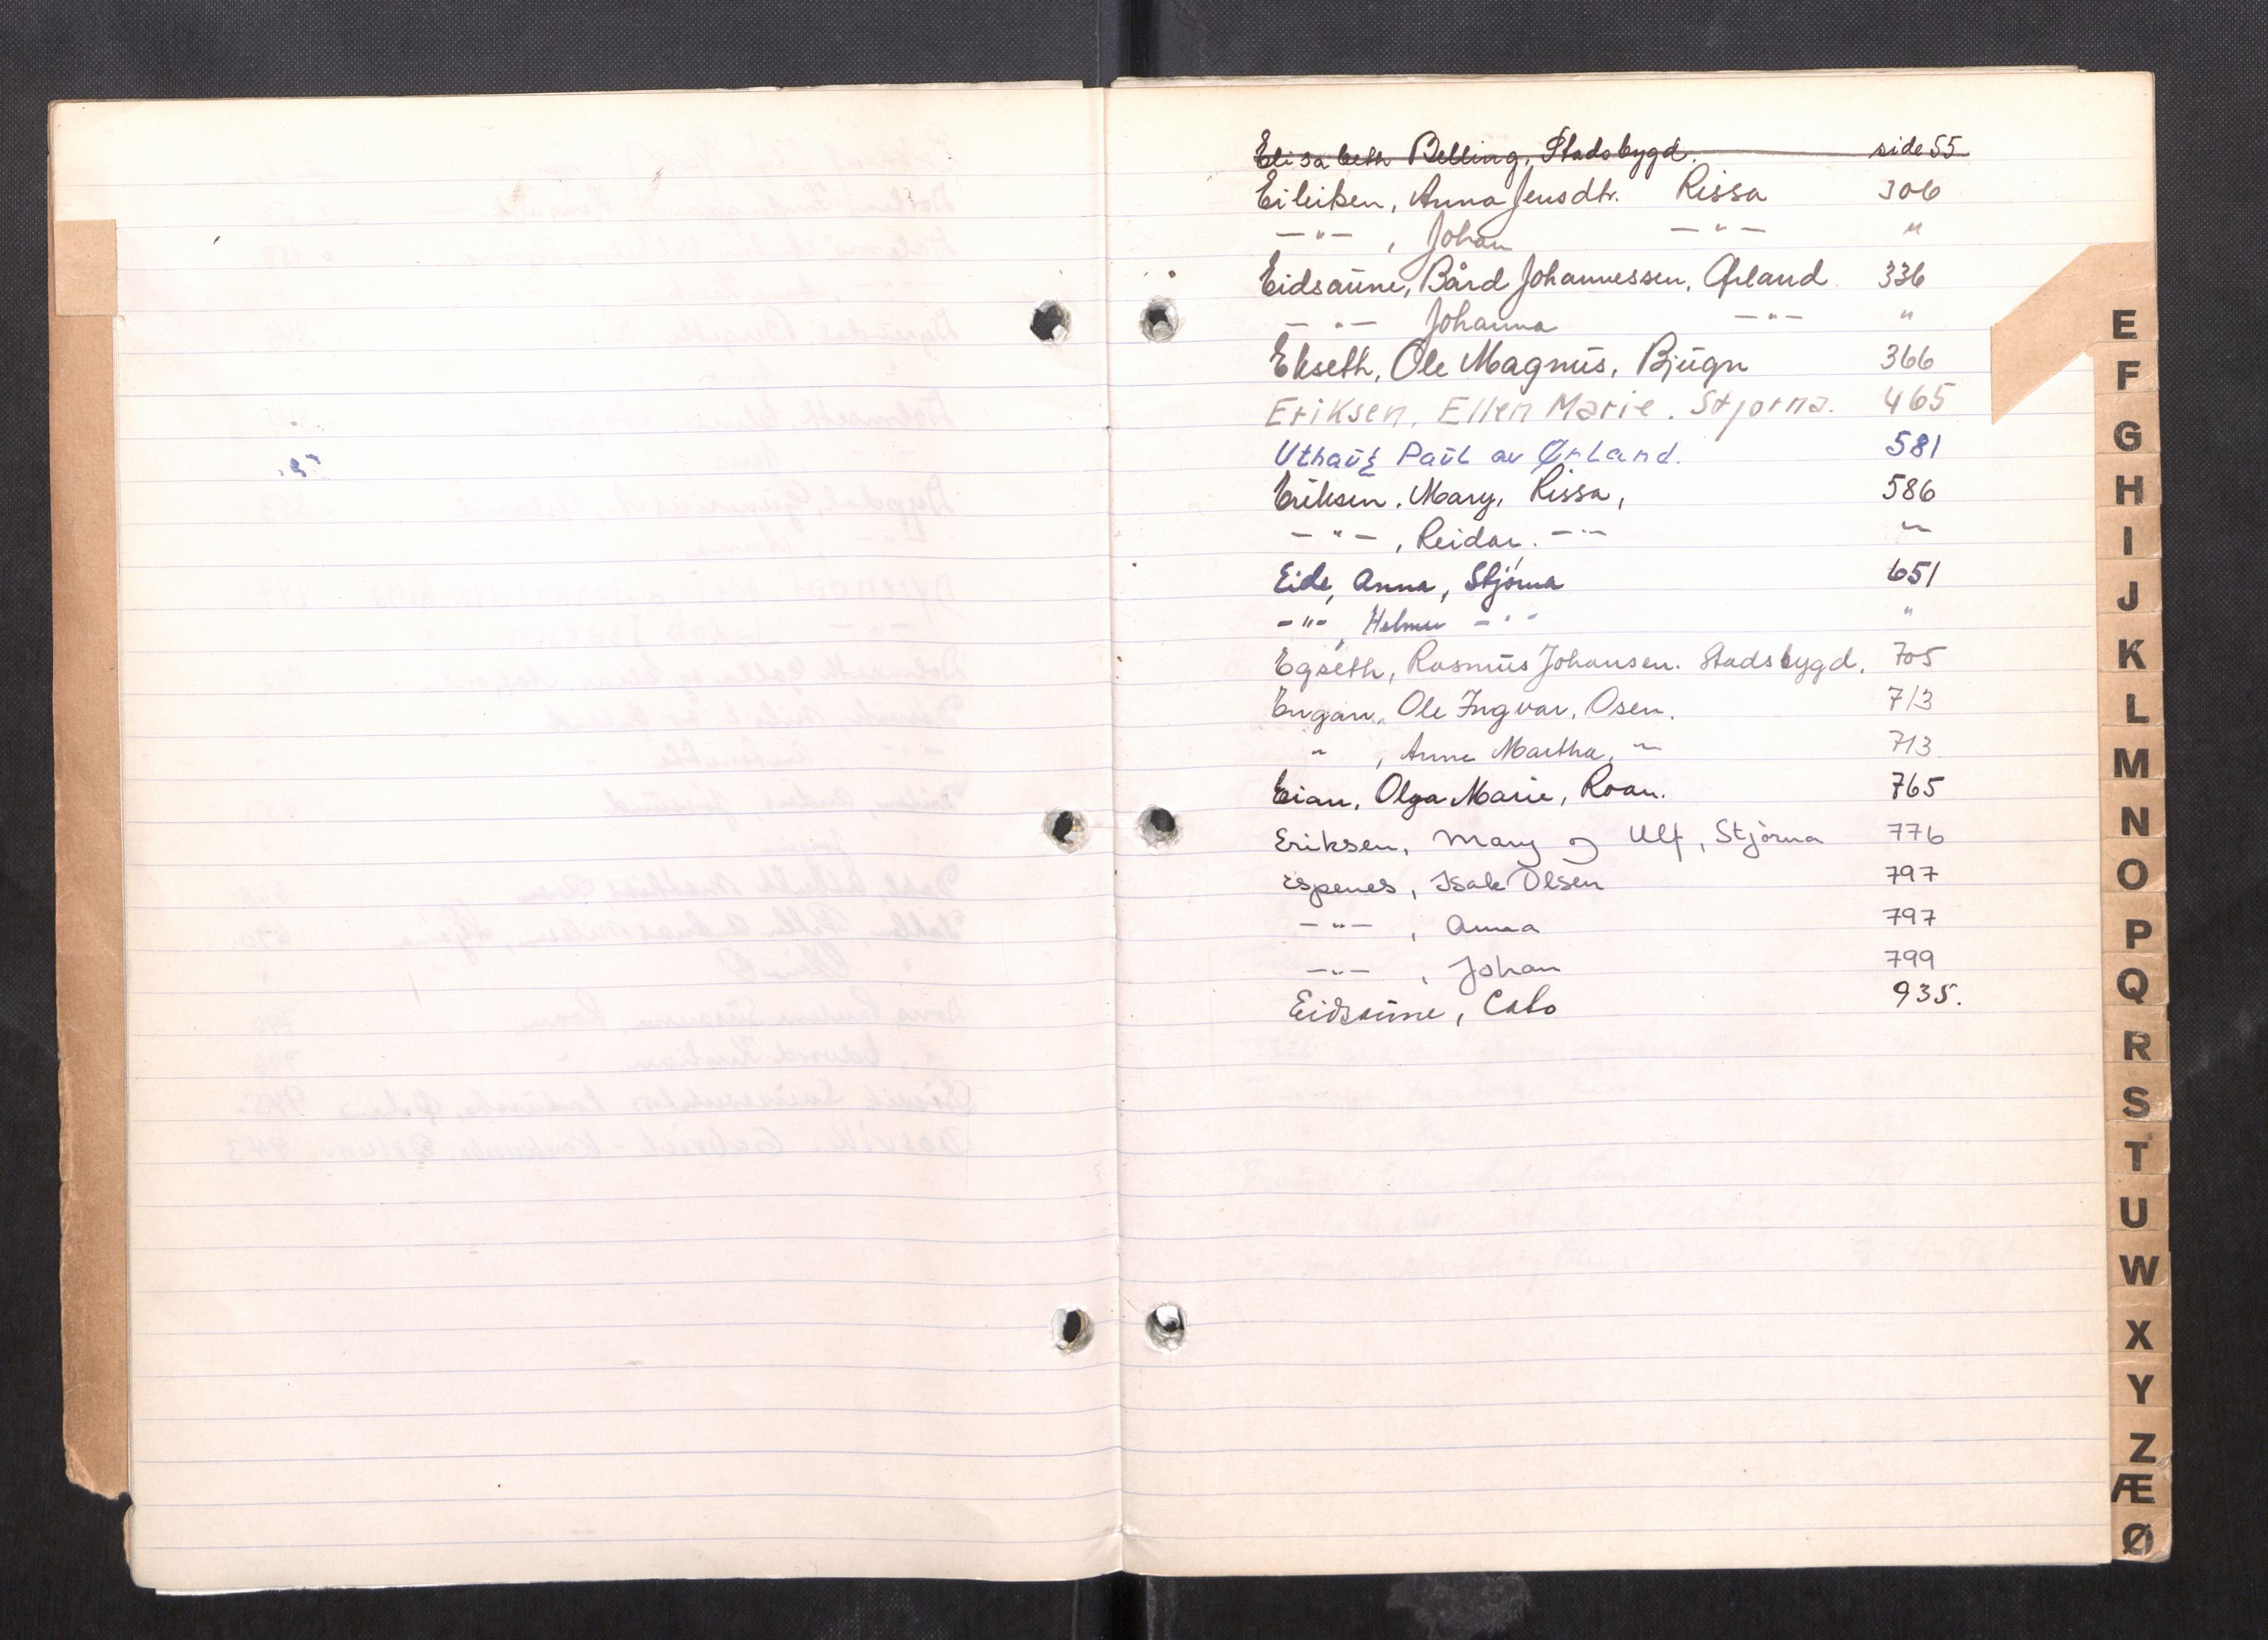 Elisabeth Belling, Stadsbygd. side 55
Eileiksen, Anna Jensdtr. Rissa 306
— " — , Johan — " — "
Eidsaune, Bård Johannessen, Ørland. 336
— " — Johanna — " — "
Ekseth, Ole Magnus, Bjugn 366
Eriksen, Ellen Marie. Stjorna. 465
Uthaug Paul av Ørland. 581
Eriksen. Mary, Rissa, 586
— " — , Reidar. — " — "
Eide, Anna, Stjørna 651
— " — , Helmer — " — "
Egseth, Rasmus Johansen. Stadsbygd. 705
Engan, Ole Ingvar, Osen. 713
" , Anne Martha, " 713
Eian, Olga Marie, Roan. 765
Eriksen, Mary og Ulf, Stjørna 776
Espenes, Isak Olsen 797
— " — , Anna 797
— " — , Johan 799
Eidsaune, Cato 935.
E
F
G
H
I
J
K
L
M
N
O
P
Q
R
S
T
U
W
X
Y
Z
Æ
Ø